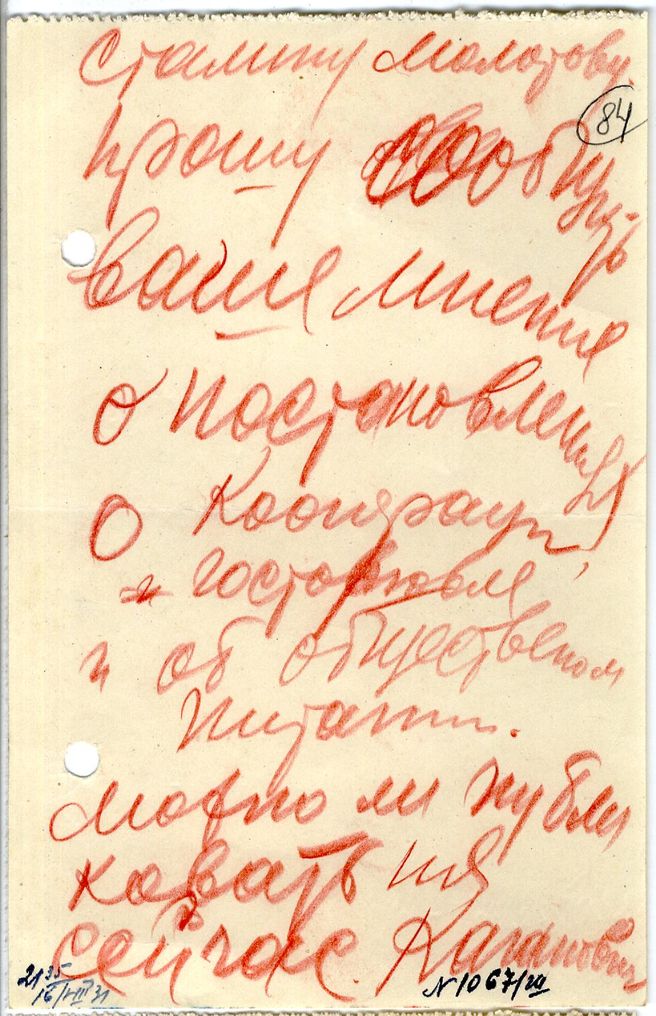 Сталину Молотову.
84
Прошу сообщить
ваше мнение
о постановлениях
о кооперации,
и госторговле
и об общественом
питании.
можно ли публи
ковать их
сейчас. Каганович
21 35
16/VIII 31
N 1067/ш